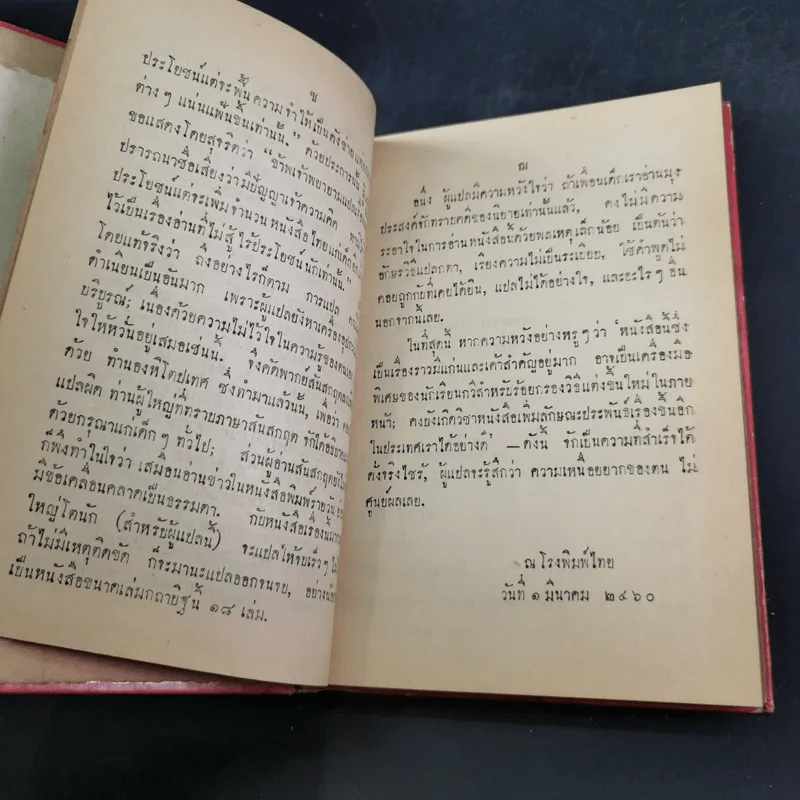 ช
ประโยชน์แต่จะพื้นความจำให้เป็นดังข่าย
ต่างๆ แน่นแฟ้นขึ้นเท่านั้น." ด้วยประการ
ขอแสดงโดยสุจริตว่า "ข้าพเจ้าพยายามแปล
ปรารถนาชื่อเสียงว่ามีปัญญาเจ้าความคิด
ประโยชน์แต่จะเพิ่มจำนวนหนังสือไทยแก่เด็ก
ไว้เป็นเรื่องอ่านที่ไม่สู้ ไร้ประโยชน์นักเท่านั้น."
โดยแท้จริงว่า ถึงอย่างไรก็ตาม การแปล
ดำเนียนเป็นอันมาก เพราะผู้แปลยังหาเครื่อง
บริบูรณ์; เนื่องด้วยความไม่ไว้ใจในความรู้ของตน
ใจให้หวั่นอยู่เสมอเช่นนี้ จึงคัดพากย์สันสกฤต
ด้วย ทำนองหิโตปเทศ ซึ่งทำมาแล้วนั้น, เพื่อว่า
แปลผิด ท่านผู้ใหญ่ที่ทราบภาษาสันสกฤต จักได้
ด้วยกรุณาแก่เด็กๆ ทั่วไป; ส่วนผู้อ่านสันสกฤต
ก็พึงทำในใจว่า เสมือนอ่านข่าวในหนังสือพิมพ์รายวัน
มีข้อเคลื่อนคลาดเป็นธรรมดา. กับหนังสือเรื่องนี้
ใหญ่โตนัก (สำหรับผู้แปลนี้) จะแปลให้จบเร็วๆ
ถ้าไม่มีเหตุติดขัด ก็จะมานะแปลออกจนจบ, อย่าง
เป็นหนังสือขนาดเล่มกถาบิฐนี้ ๑๘ เล่ม.
ฌ
อนึ่ง ผู้แปลมีความหวังใจว่า ถ้าเพื่อนเด็กเราอ่านมุ่ง
ประสงค์จักทราบคดีของนิยายเท่านั้นแล้ว, คงไม่มีความ
ระอาใจในการอ่านหนังสือนี้ด้วยพลเหตุเล็กน้อย เป็นต้นว่า
อักษรวิธีแปลกตา, เรียงความไม่เป็นระเบียบ, ใช้คำพูดไม่
ค่อยถูกกับที่เคยได้ยิน, แปลไม่ได้อย่างใจ, และอะไรๆ อื่น
นอกจากนี้เลย.
ในที่สุดนี้ หากความหวังอย่างหรูๆ ว่า 'หนังสือนี้ซึ่ง
เป็นเรื่องราวมีแก่นและเค้าสำคัญอยู่มาก อาจเป็นเครื่องมือ
พิเศษของนักเรียนกวีสำหรับร้อยกรองวิธีแต่งขึ้นใหม่ในภาย
หน้า; คงยังเกิดวิชาหนังสือเพิ่มลักษณะประพันธ์เรื่องขึ้นอีก
ในประเทศเราได้อย่างดี' —ดังนี้ จักเป็นความที่สำเร็จได้
ดังจริงไซร้, ผู้แปลจะรู้สึกว่า ความเหนื่อยยากของตน ไม่
ศูนย์ผลเลย.
ณ โรงพิมพ์ไทย
วันที่ ๑ มีนาคม ๒๔๖๐